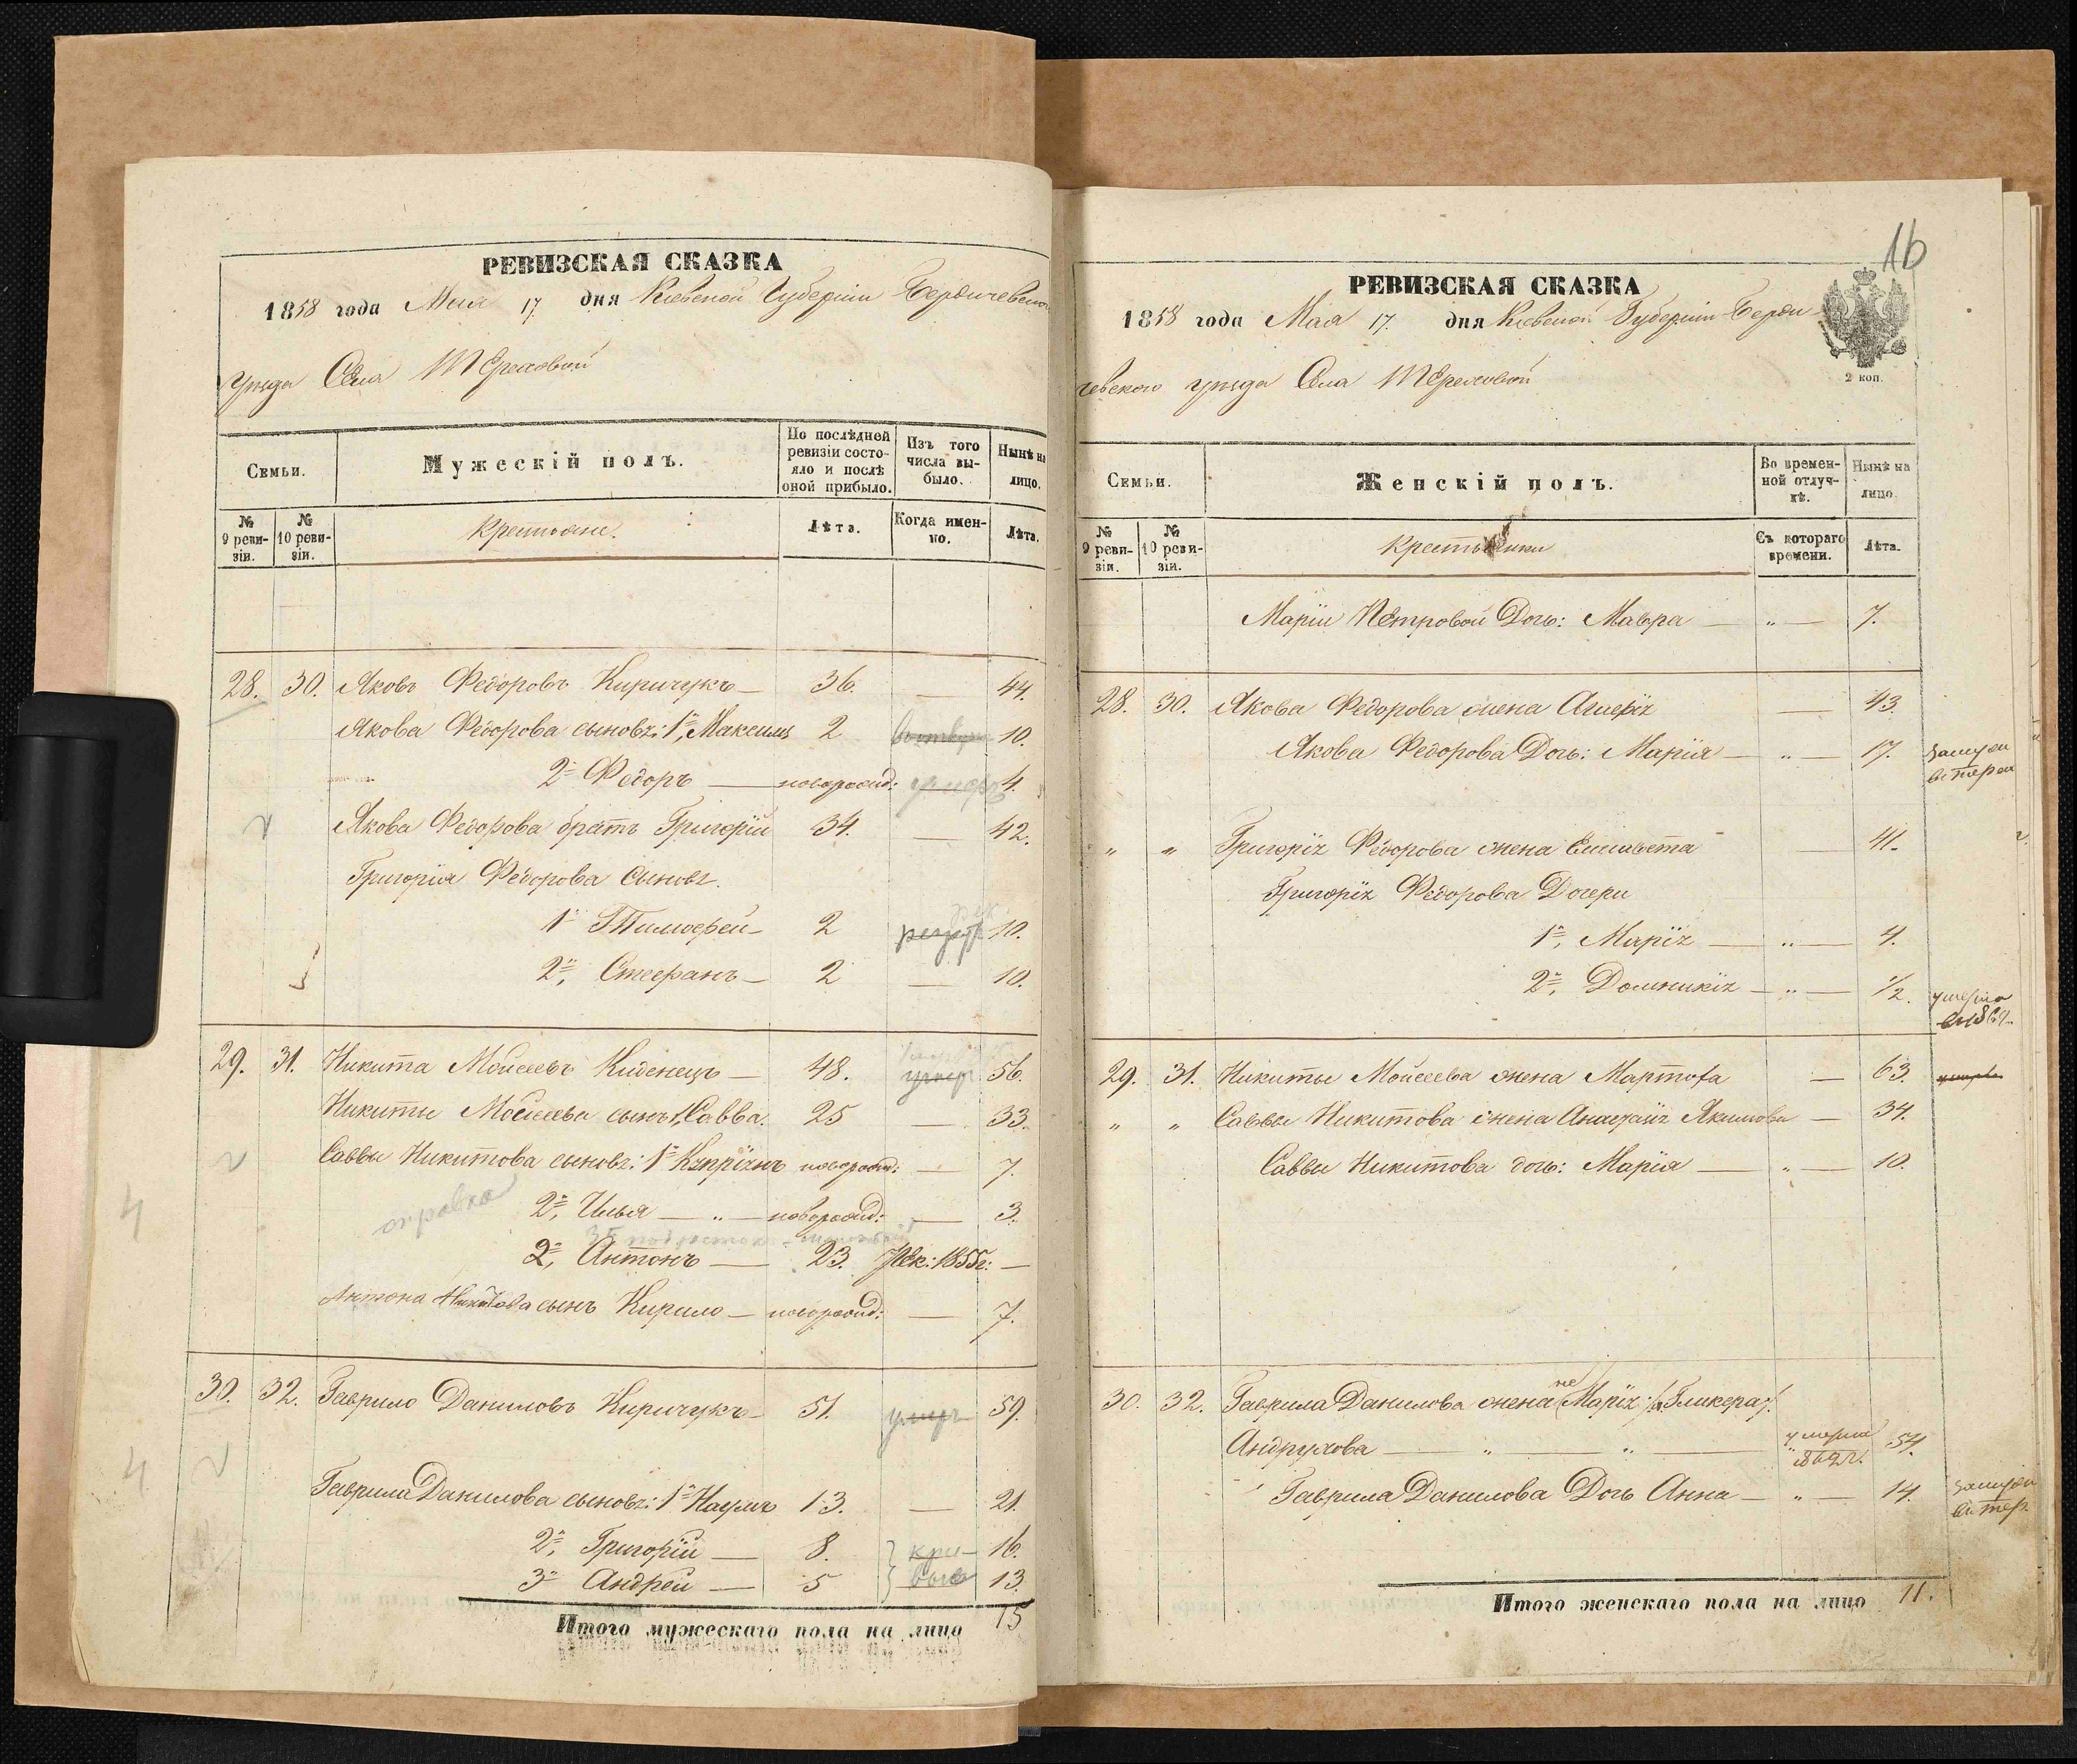 РЕВИЗСКАЯ СКАЗКА
1858 года Мая 17. дня Кіевской Губерніи Бердичевско
уѣзда Села Тереховой
Семьи.
Мужескій полъ.
По послѣдней ревизіи состояло и послѣ оной прибыло.
Изъ того числа выбыло.
Нынѣ на лицо.
№ 9 ревизіи.
№ 10 ревизіи.
Крестьяне.
Лѣта.
Когда именно.
Лѣта.
28. 30. Яковъ Федоровъ Киричукъ — 36. — 44.
Якова Федорова сыновья: 1й, Максимъ 2 10.
2й Федоръ — новорожд: 4.
Якова Федорова братъ Григорій 34. — 42.
Григорія Федорова сыновья.
1й Тимофей — 2 10.
2й, Стефанъ — 2 — 10.
29. 31. Никита Мойсеевъ Киденецъ — 48. умер 56.
Никиты Мойсеева сынъ 1, Савва. 25 — 33.
Саввы Никитова сыновья: 1й Кипріянъ новорожд: — 7.
справка
2й, Илья — „ — новорожд: — 3.
2й, Антонъ — 23. Рек: 1855г: —
Антона Никитова сынъ Кирило — новорожд: — 7.
30. 32. Гаврило Даниловъ Киричукъ — 51. умеръ 59.
Гаврила Данилова сыновья: 1й Наумъ 13. — 21.
2й, Григорій — 8. 16.
3й Андрей — 5 13.
Итого мужескаго пола на лицо 15
16
РЕВИЗСКАЯ СКАЗКА
1858 года Мая 17. дня Кіевской Губерніи Берди-
чевскаго уѣзда Села Тереховой
2 коп.
Семьи.
Женскій полъ.
Во временной отлучкѣ.
Нынѣ на лицо.
№ 9 ревизіи.
№ 10 ревизіи.
Крестьянки
Съ котораго времени.
Лѣта.
Маріи Петровой Дочь: Мавра — „ — 7.
28. 30. Якова Федорова жена Агаѳія — 43.
Якова Федорова Дочь: Марія — „ — 17.
„ „ Григорія Федорова жена Елисавета 41.
Григорія Федорова Дочери
1я, Марія — „ — 4.
2я, Домникія — „ — 1/2. умерла
29. 31. Никиты Мойсеева жена Мартоха — 63. умерла
„ „ Саввы Никитова жена Анастасія Якимова — 34.
Саввы Никитова дочь: Марія — „ — 10.
30. 32. Гаврила Данилова жена (не Марія) /а Гликера/
Андрухова — „ — „ — умерла 1862г. 54.
Гаврила Данилова Дочь Анна — „ — 14.
Итого женскаго пола на лицо 11.